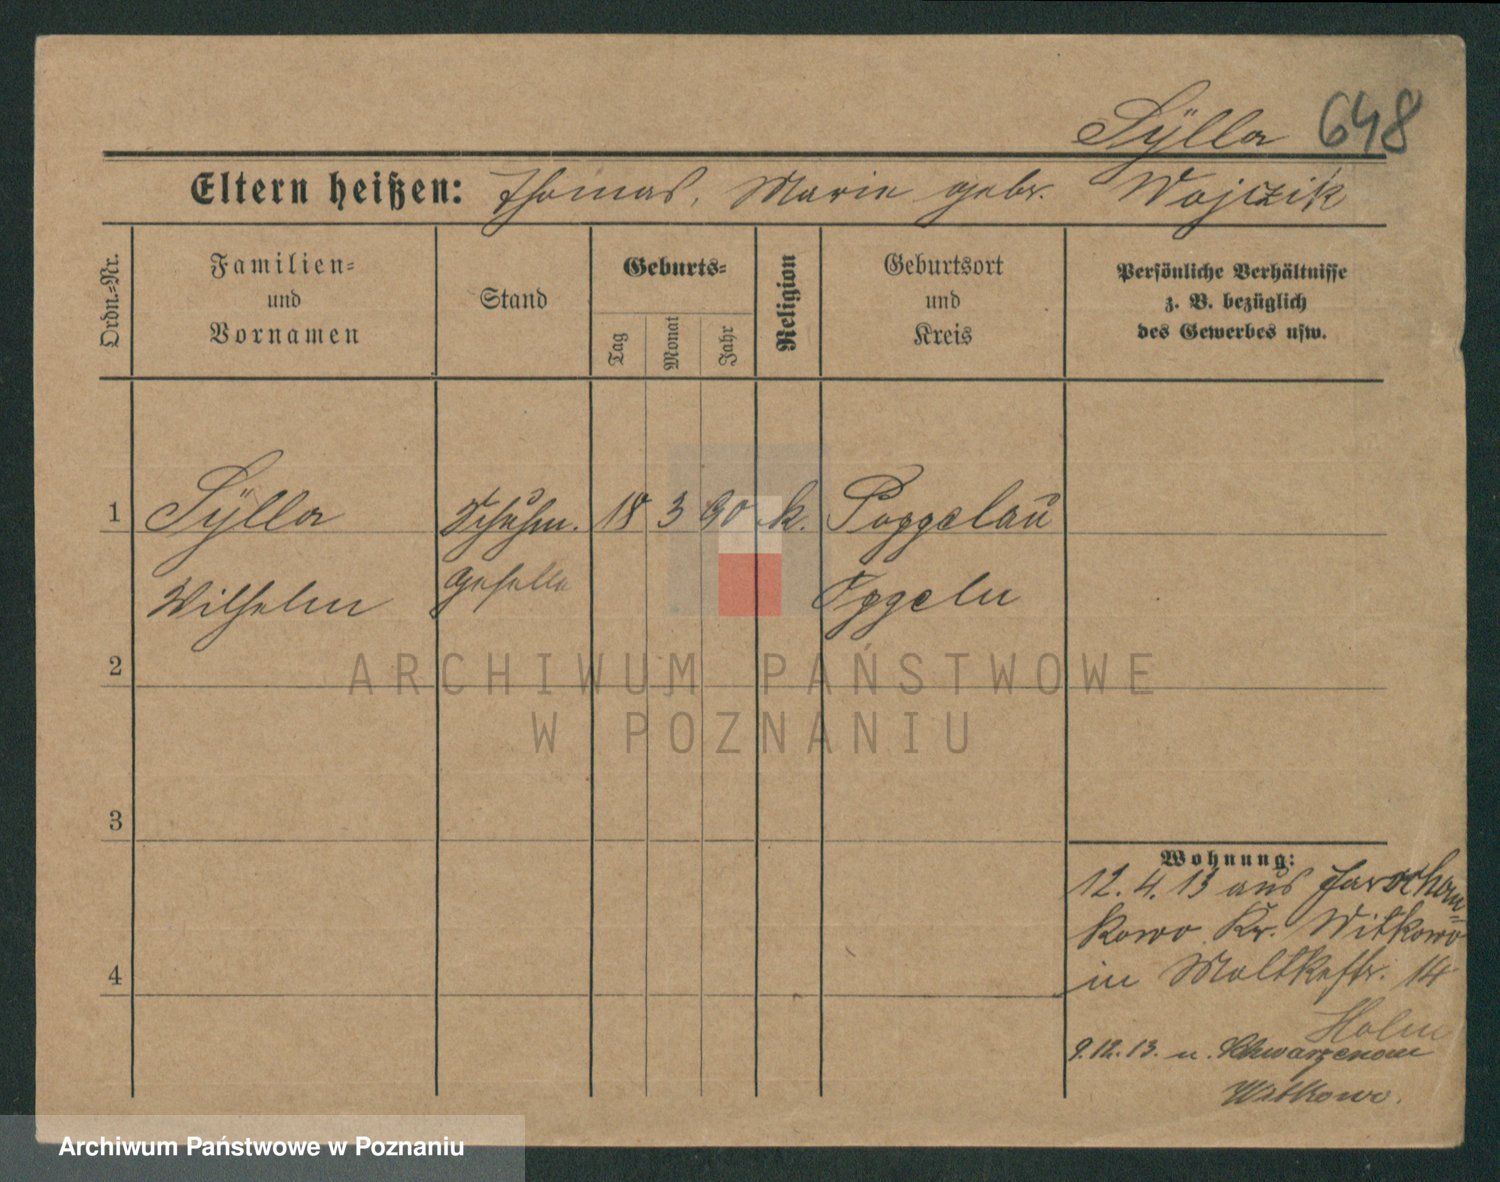 Sÿlla 648
Eltern heißen: Thomas, Marie gebr. Wojczik
Ordn.=Nr.
Familien=
und
Vornamen
Stand
Geburts=
Tag
Monat
Jahr
Religion
Geburtsort
und
Kreis
Persönliche Verhältnisse
z. B. bezüglich
des Gewerbes usw.
1 Sÿlla Schuhm. 18 3 90 k. Poggelau
Wilhelm Geselle
2
3
4
Wohnung:
12. 4. 13 aus
kowo Kr. Witkowo
in Moltkestr. 14
9.12.13. n. Schwarzenau
Witkowo.
ARCHIWUM PAŃSTWOWE
W POZNANIU
Archiwum Państwowe w Poznaniu